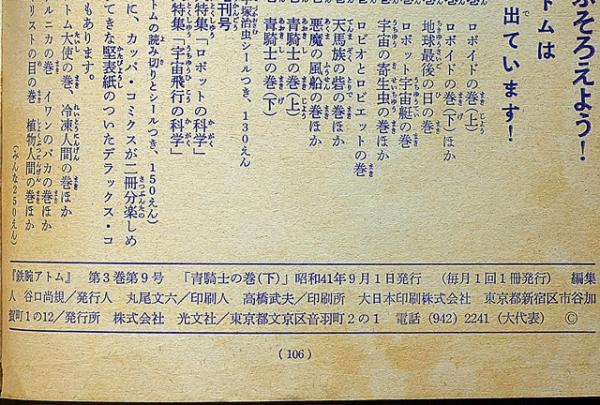 ぶそろえよう!
トムは
出ています!
ロボイドの巻(上)
ロボイドの巻(下)ほか
地球最後の日の巻
ロボット宇宙艇の巻
宇宙の寄生虫の巻ほか
ロビオとロビエットの巻
天馬族の砦の巻ほか
悪魔の風船の巻ほか
青騎士の巻(上)
青騎士の巻(下)
塚治虫シールつき、130えん
刊号
特集「ロボットの科学」
特集「宇宙飛行の科学」
トムの読み切りとシールつき、150えん)
に、カッパ・コミクスが二冊分楽しめ
てきな堅表紙のついたデラックス・コ
もあります。
トム大使の巻、冷凍人間の巻ほか
ルニカの巻 イワンのバカの巻ほか
リストの目の巻 植物人間の巻ほか
(みんな250えん)
『鉄腕アトム』 第3巻第9号 「青騎士の巻(下)」昭和41年9月1日発行 (毎月1回1冊発行) 編集
人 谷口尚規/発行人 丸尾文六/印刷人 高橋武夫/印刷所 大日本印刷株式会社 東京都新宿区市谷加
賀町1の12/発行所 株式会社 光文社/東京都文京区音羽町2の1 電話(942)2241(大代表) ©
(106)